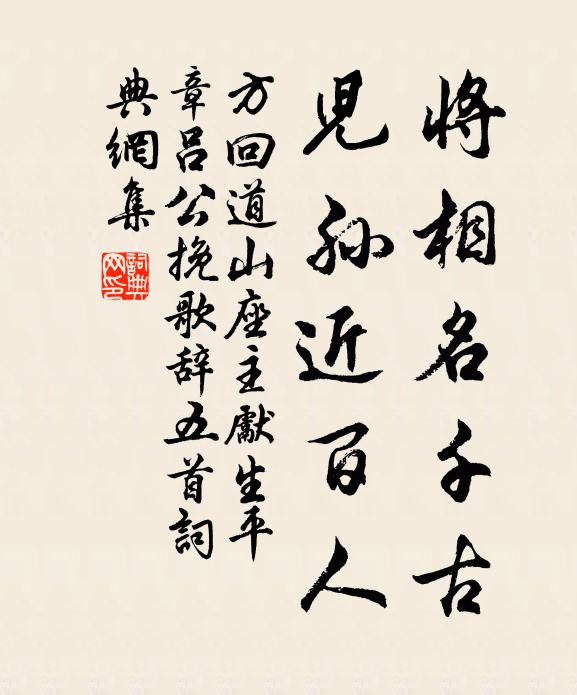 将相名千古
児孫近百人
方回道山座主獻生平
章呂公挽歌辞五首詞
典網集
詞典网印